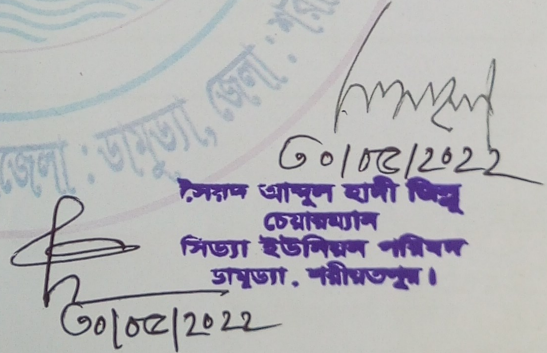 জেলা : ডামুড্যা, জেলা : শরী
৩০/০৫/2022
সৈয়দ আব্দুল হাদী জিল্লু
চেয়ারম্যান
সিড্যা ইউনিয়ন পরিষদ
ডামুড্যা, শরীয়তপুর।
৩০/০৫/2022